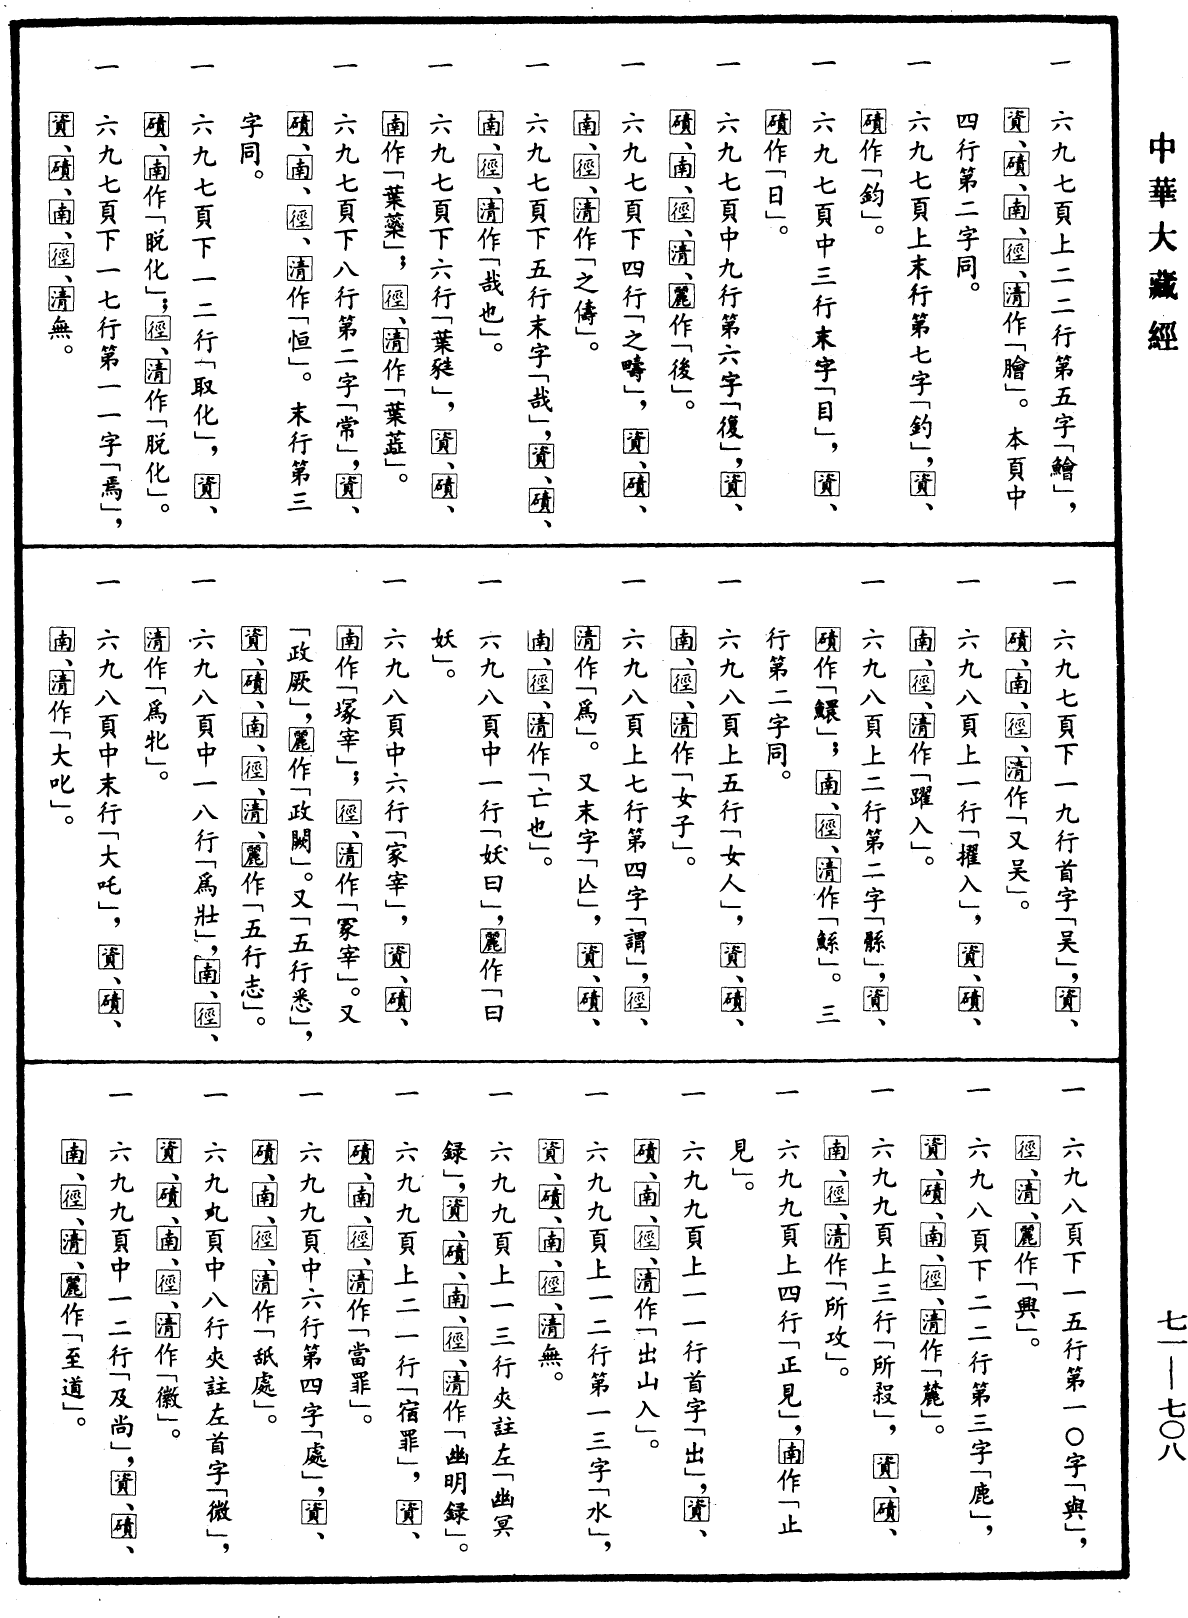 中華大藏經
七一—七〇八
一　六九七頁上二二行第五字「鱠」，
資、磧、南、徑、清作「膾」。本頁中
四行第二字同。
一　六九七頁上末行第七字「釣」，資、
磧作「鈞」。
一　六九七頁中三行末字「目」，資、
磧作「日」。
一　六九七頁中九行第六字「復」，資、
磧、南、徑、清、麗作「後」。
一　六九七頁下四行「之疇」，資、磧、
南、徑、清作「之儔」。
一　六九七頁下五行末字「哉」，資、磧、
南、徑、清作「哉也」。
一　六九七頁下六行「葉䔧」，資、磧、
南作「葉蘂」；徑、清作「葉蕋」。
一　六九七頁下八行第二字「常」，資、
磧、南、徑、清作「恒」。末行第三
字同。
一　六九七頁下一二行「取化」，資、
磧、南作「脫化」；徑、清作「脱化」。
一　六九七頁下一七行第一一字「焉」，
資、磧、南、徑、清無。
一　六九七頁下一九行首字「吴」，資、
磧、南、徑、清作「又吴」。
一　六九八頁上一行「擢入」，資、磧、
南、徑、清作「躍入」。
一　六九八頁上二行第二字「繇」，資、
磧作「鰥」；南、徑、清作「鯀」。三
行第二字同。
一　六九八頁上五行「女人」，資、磧、
南、徑、清作「女子」。
一　六九八頁上七行第四字「謂」，徑、
清作「爲」。又末字「亾」，資、磧、
南、徑、清作「亡也」。
一　六九八頁中一行「妖曰」，麗作「曰
妖」。
一　六九八頁中六行「家宰」，資、磧、
南作「塚宰」；徑、清作「冢宰」。又
「政厥」，麗作「政闕」。又「五行悉」，
資、磧、南、徑、清、麗作「五行志」。
一　六九八頁中一八行「爲壯」，南、徑、
清作「爲牝」。
一　六九八頁中末行「大吒」，資、磧、
南、清作「大叱」。
一　六九八頁下一五行第一〇字「與」，
徑、清、麗作「興」。
一　六九八頁下二二行第三字「鹿」，
資、磧、南、徑、清作「麓」。
一　六九九頁上三行「所殺」，資、磧、
南、徑、清作「所攻」。
一　六九九頁上四行「正見」，南作「止
見」。
一　六九九頁上一一行首字「出」，資、
磧、南、徑、清作「出山入」。
一　六九九頁上一二行第一三字「水」，
資、磧、南、徑、清無。
一　六九九頁上一三行夾註左「幽冥
録」，資、磧、南、徑、清作「幽明録」。
一　六九九頁上二一行「宿罪」，資、
磧、南、徑、清作「當罪」。
一　六九九頁中六行第四字「處」，資、
磧、南、徑、清作「舐處」。
一　六九九頁中八行夾註左首字「微」，
資、磧、南、徑、清作「徽」。
一　六九九頁中一二行「及尚」，資、磧、
南、徑、清、麗作「至道」。